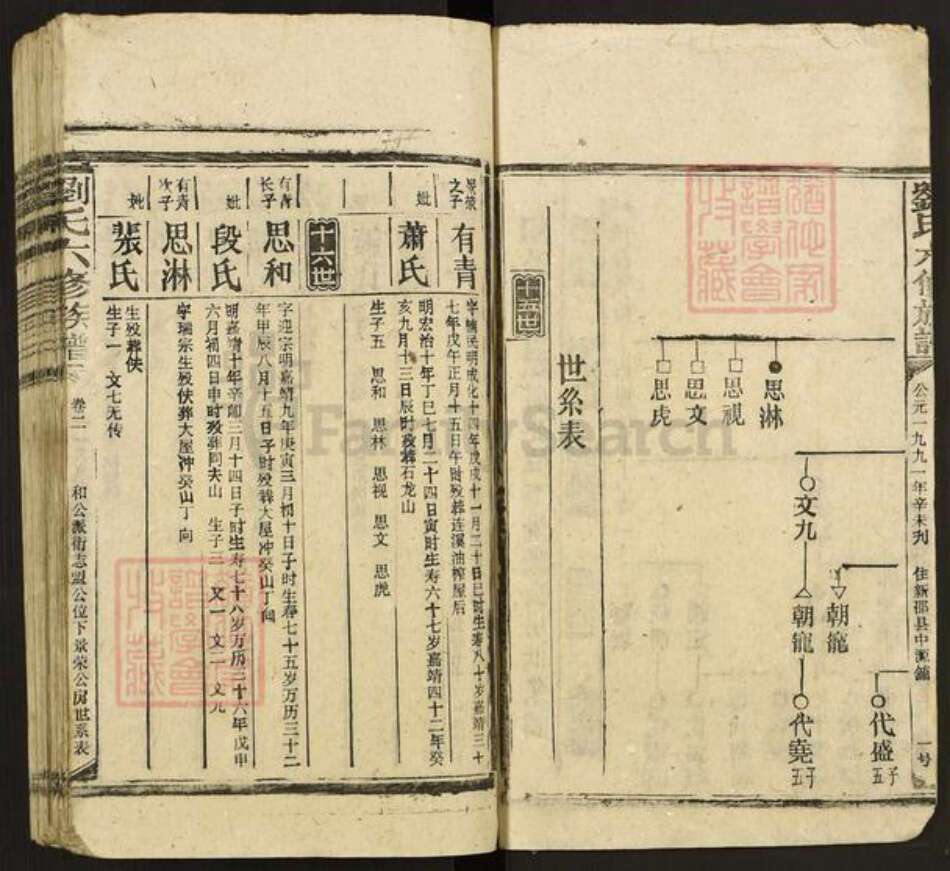 劉氏六修族譜
公元一九九一年辛未刋
住新邵县中源鋪
一号
思淋
思視
思文
思虎
文九
朝龍
朝寵
代盛
五子
代堯
五子
世系表
十五世
之子
有青
七年戊午正月十五日午时殁葬连溪油榨屋后
妣
蕭氏
明宏治十年丁巳七月二十四日寅时生寿六十七岁嘉靖四十二年癸
亥九月十三日辰时殁葬石龙山
生子五 思和 思林 思视 思文 思虎
十六世
有青
长子
思和
字迎宗明嘉靖九年庚寅三月初十日子时生寿七十五岁万历三十二
年甲辰八月十五日子时殁葬大屋冲癸山丁向
妣
段氏
明嘉靖十年辛卯三月十四日子时生寿七十八岁万历三十六年戊申
六月初四日申时殁葬同夫山 生子三 文一 文二 文九
有青
次子
思淋
字瑞宗生殁佚葬大屋冲癸山丁向
妣
張氏
生殁葬佚
生子一 文七无传
劉氏六修族譜
卷二
和公派衔志盟公位下景荣公房世系表
Family Search